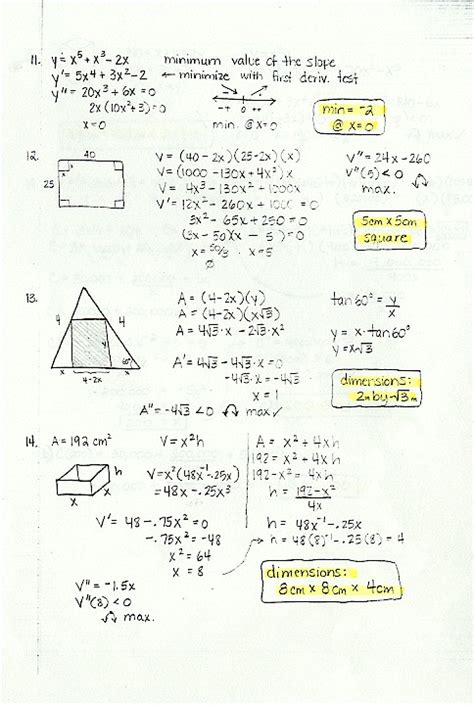 11. y = x⁵ + x³ - 2x minimum value of the slope
y' = 5x⁴ + 3x² - 2 ← minimize with first deriv. test
y" = 20x³ + 6x = 0
2x (10x² + 3) = 0
x = 0
-+ 0 ++
min. @ x = 0
min = -2
@ x = 0
12. 40
25
x
V = (40 - 2x)(25 - 2x)(x)
V = (1000 - 130x + 4x²) x
V = 4x³ - 130x² + 1000x
V' = 12x² - 260x + 1000 = 0
3x² - 65x + 250 = 0
(3x - 50)(x - 5) = 0
x = 50/3 x = 5
∅
V" = 24x - 260
V"(5) < 0
max.
5cm x 5cm
square
13. 4 4
y
60°
x x
4-2x
A = (4-2x)(y)
A = (4-2x)(x√3)
A = 4√3·x - 2√3·x²
A' = 4√3 - 4√3·x = 0
-4√3·x = -4√3
x = 1
A" = -4√3 < 0 max ✓
tan60° = y/x
y = x·tan60°
y = x√3
dimensions:
2m by √3 m
14. A = 192 cm² V = x²h
h
x x
V = x²(48x⁻¹ - .25x)
= 48x - .25x³
V' = 48 - .75x² = 0
-.75x² = -48
x² = 64
x = 8
V" = -1.5x
V"(8) < 0
max.
A = x² + 4xh
192 = x² + 4xh
192 - x² = 4xh
h = 192-x²/4x
h = 48x⁻¹ - .25x
→ h = 48(8)⁻¹ - .25(8) = 4
dimensions:
8cm x 8cm x 4cm